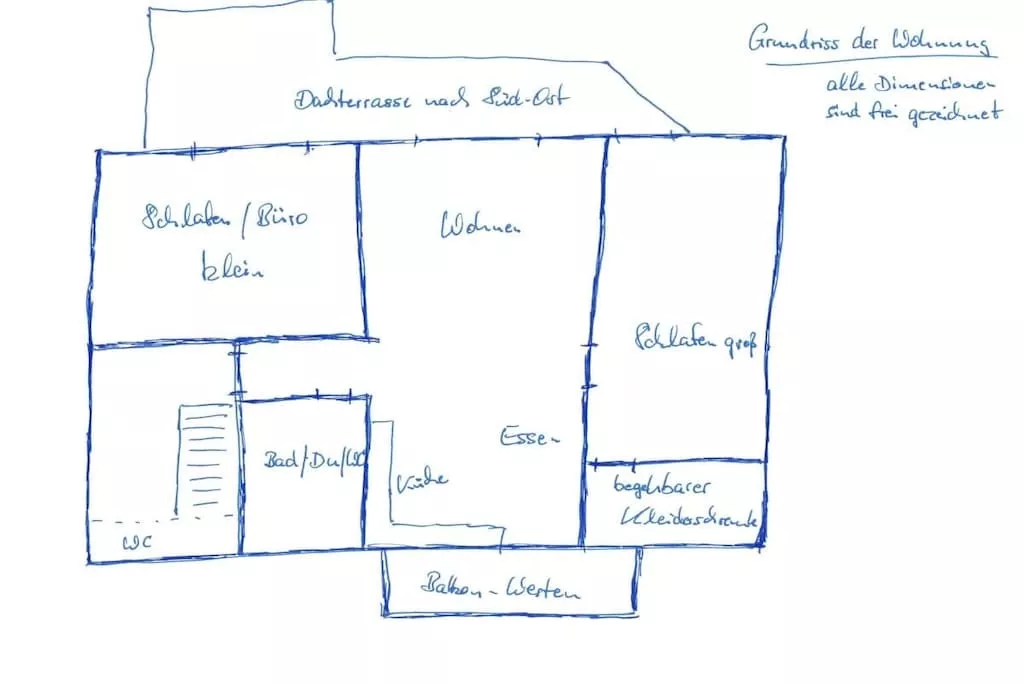 Grundriss der Wohnung
alle Dimensionen
sind frei gezeichnet
Dachterrasse nach Süd-Ost
Schlafen / Büro
klein
Wohnen
Schlafen groß
Essen
Bad/Du/WC
Küche
begehbarer
Kleiderschrank
WC
Balkon - Westen